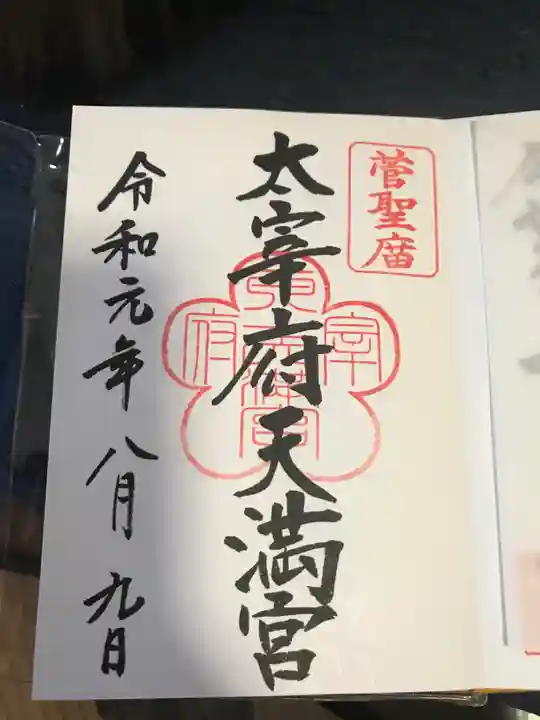 菅聖廟
太宰府天満宮
令和元年八月九日